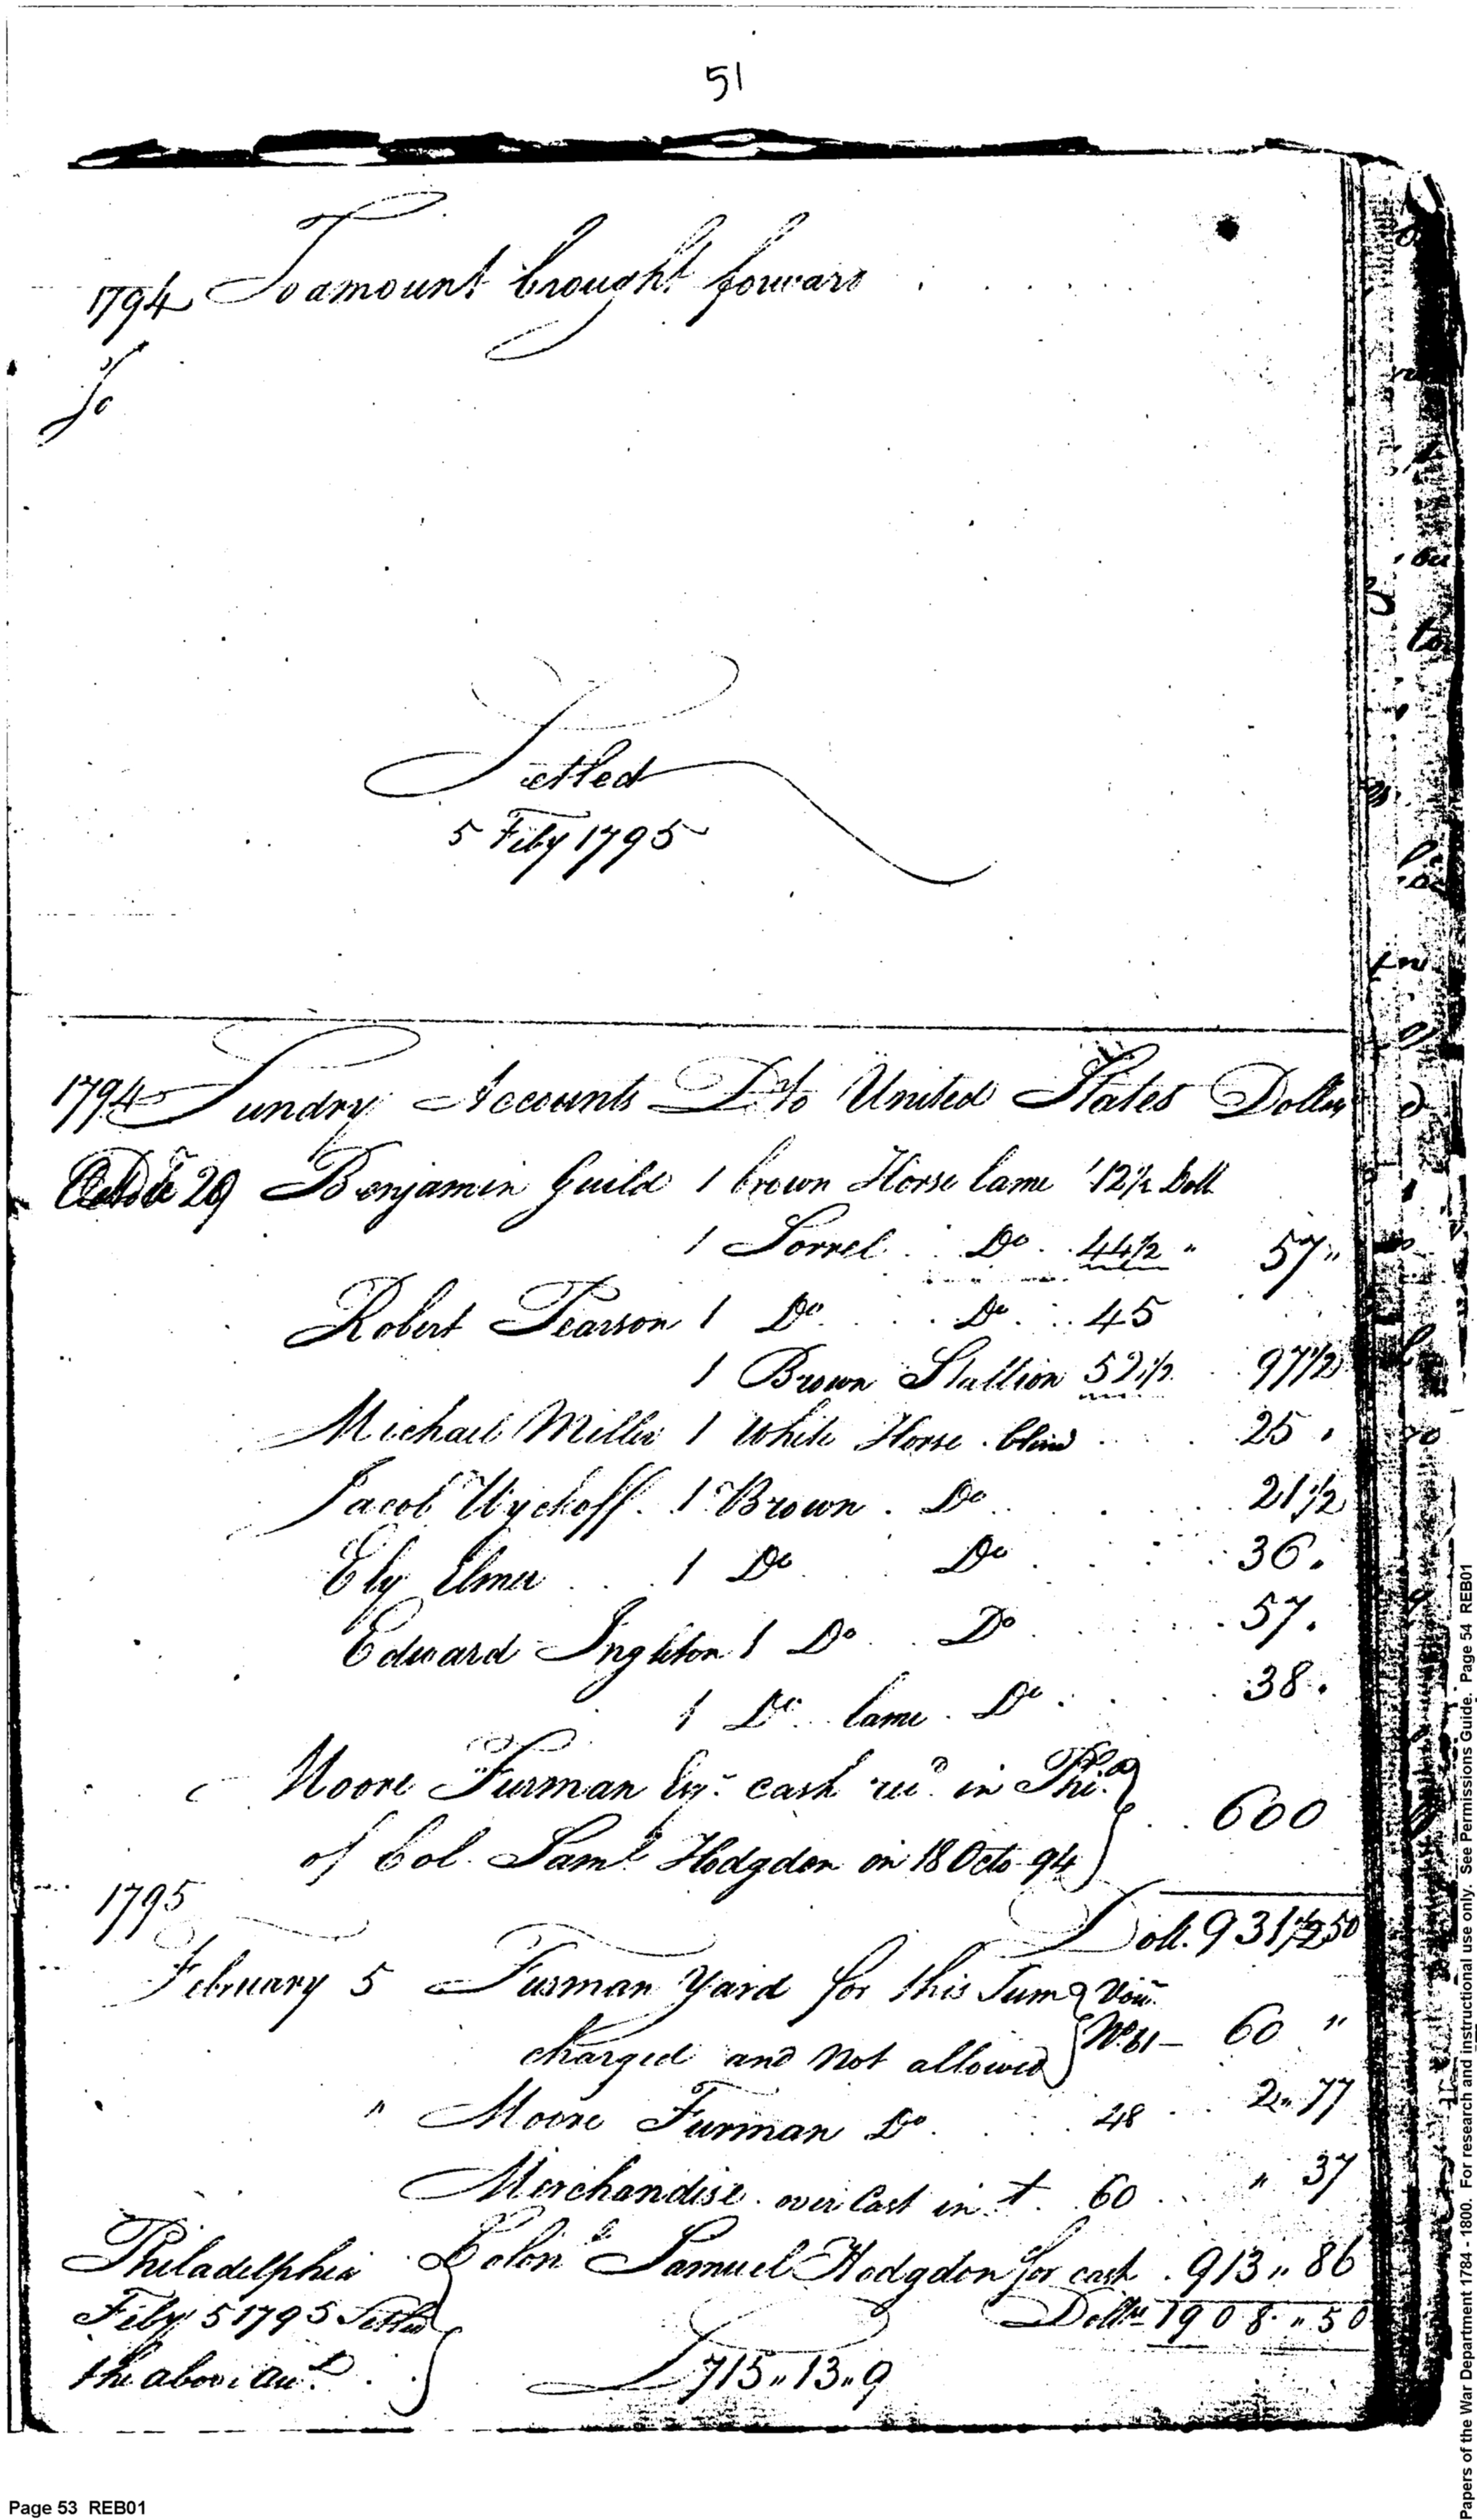 51
1794 To amount brought forward
Jo
Setled
5 Feby 1795
1794 Sundry Accounts Dr to United States Dollars
29 Benjamin Guild 1 brown Horse lame 12 1/2 Doll
1 Sorrel Do 44 1/2 " 57 "
Robert Pearson 1 Do Do 45
1 Brown Stallion 52 1/2 97 1/2
Michael Miller 1 White Horse blind 25
Jacob Wyckoff 1 Brown Do 21 1/2
Ely Elmer 1 Do Do 36
Edward Ingleton 1 Do Do 57
1 Do lame Do 38
Moore Furman Esqr cash recd in Phia
of Col. Saml Hodgdon on 18 Octo 94 } 600
1795
Doll. 931 50
February 5 Furman Yard for this Sum Vou
charged and not allowed } No 61 - 60 "
" Moore Furman Do 48 2 " 77
Merchandise over Cast in + 60 " 37
Philadelphia Colonl Samuel Hodgdon for cash 913 " 86
Feby 5 1795 Settled Dollrs 1908 " 50
the above act } £715 " 13 " 9
Page 53 REB01
Papers of the War Department 1784 - 1800. For research and instructional use only. See Permissions Guide. Page 54 REB01